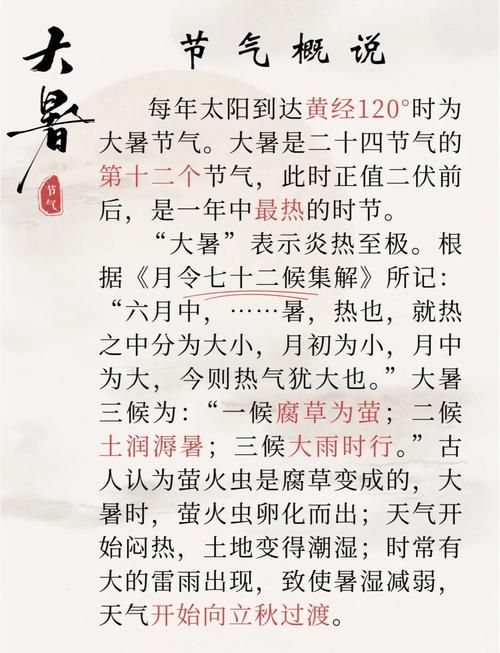 大暑
节气
节气概说
每年太阳到达黄经120°时为
大暑节气。大暑是二十四节气的
第十二个节气，此时正值二伏前
后，是一年中最热的时节。
“大暑”表示炎热至极。根
据《月令七十二候集解》所记：
“六月中，……暑，热也，就热
之中分为大小，月初为小，月中
为大，今则热气犹大也。”大暑
三候为：“一候腐草为萤；二候
土润溽暑；三候大雨时行。”古
人认为萤火虫是腐草变成的，大
暑时，萤火虫卵化而出；天气开
始闷热，土地变得潮湿；时常有
大的雷雨出现，致使暑湿减弱，
天气开始向立秋过渡。